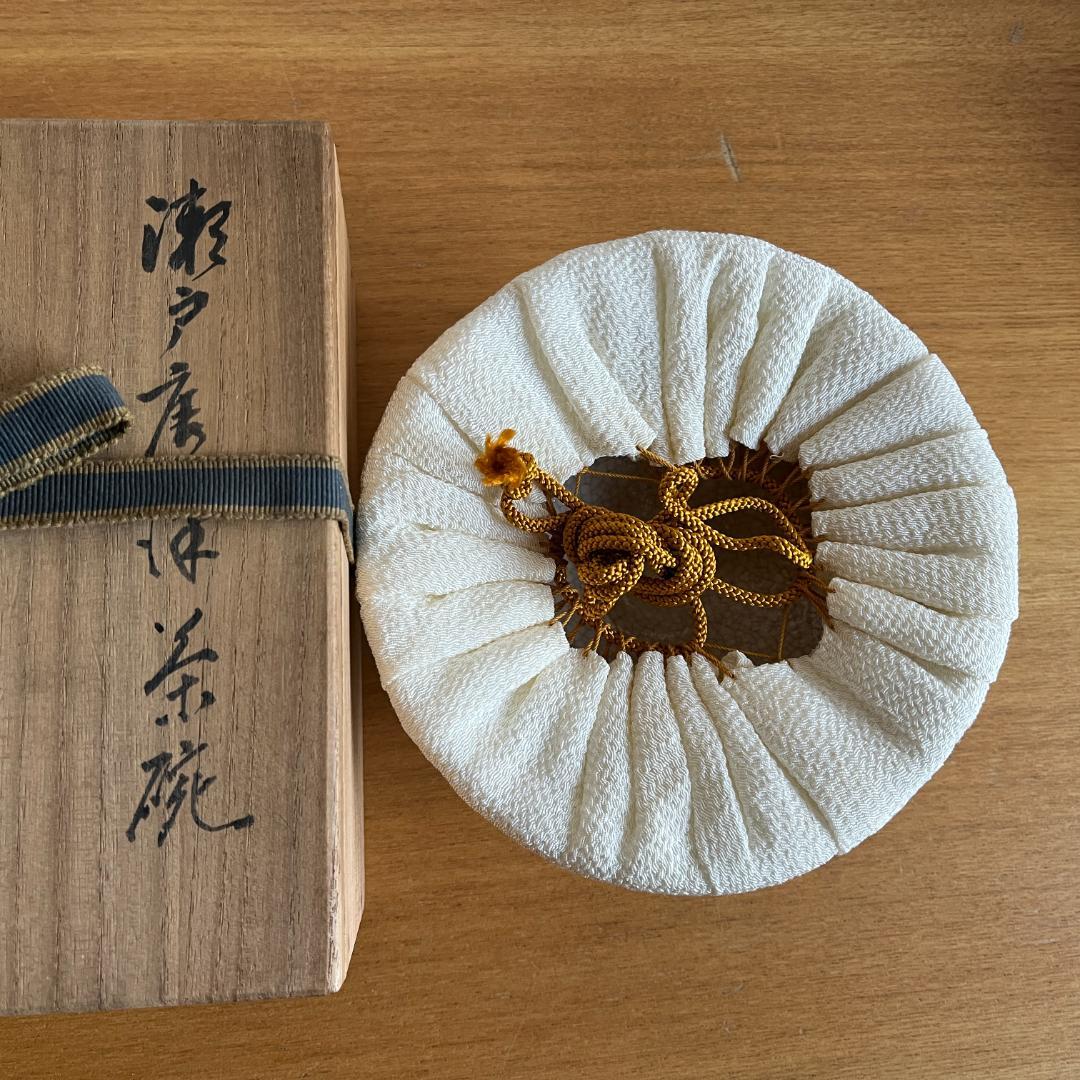 瀬戸唐津茶碗